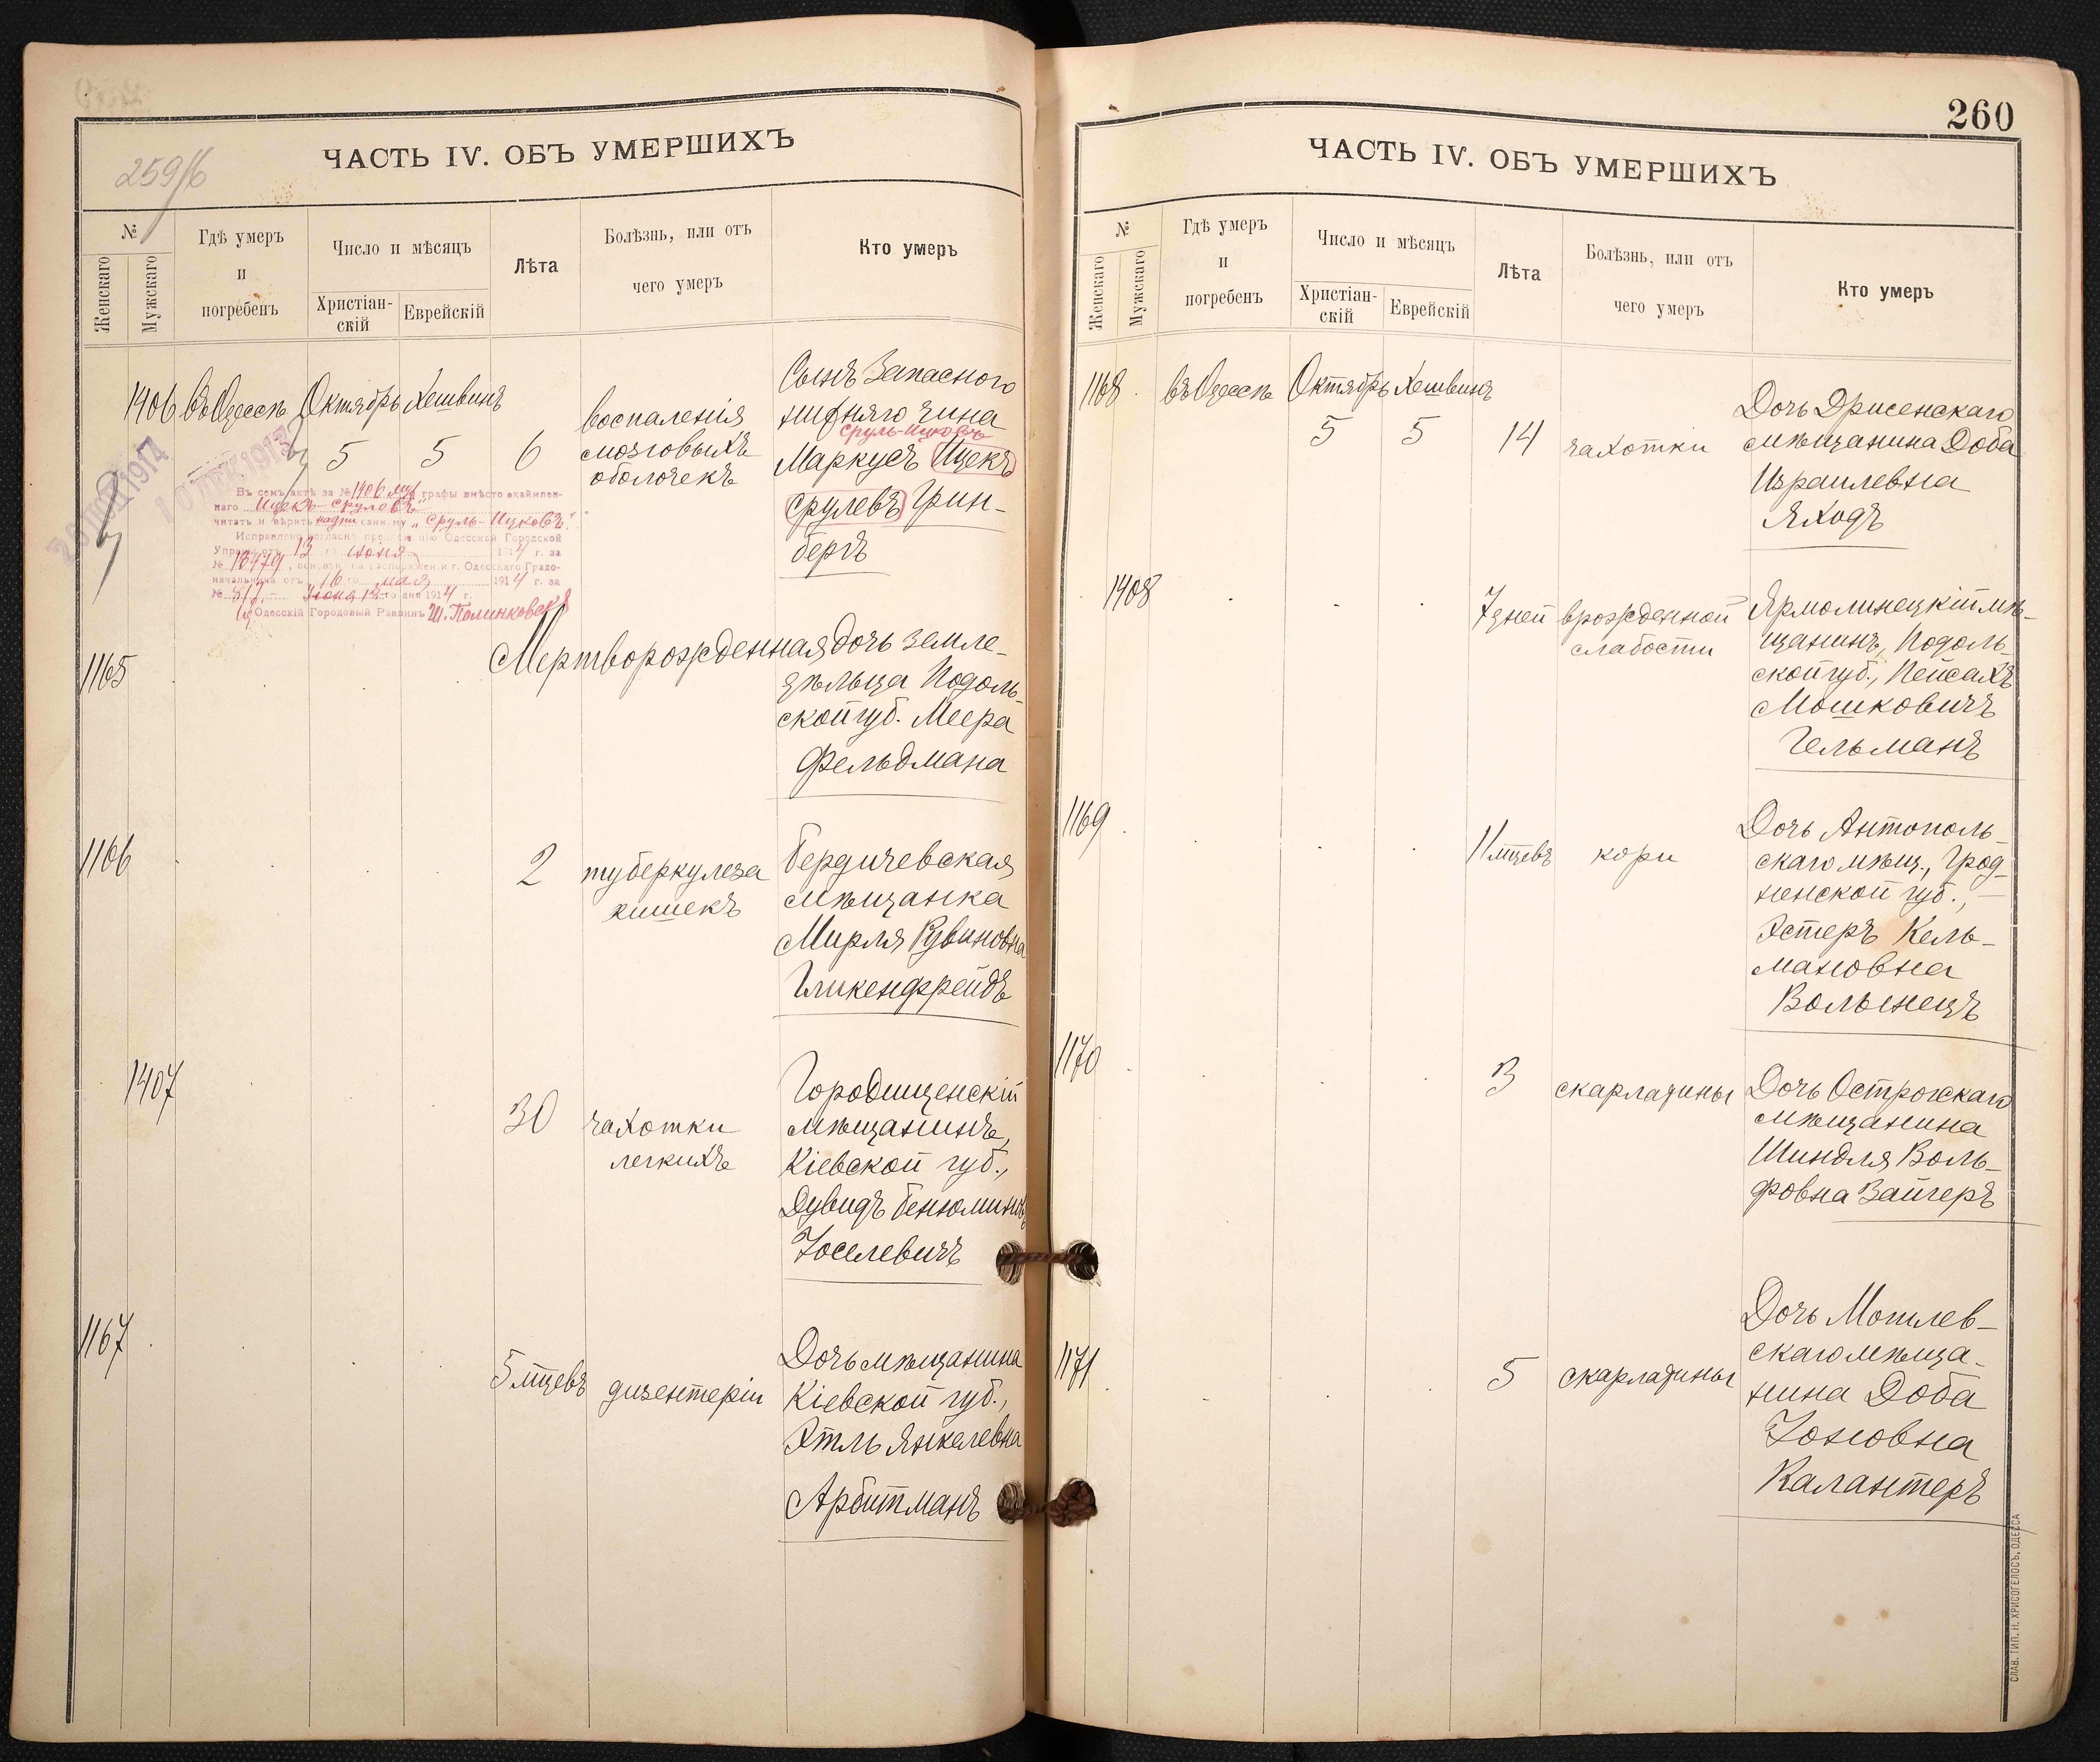 259/б
ЧАСТЬ IV. ОБЪ УМЕРШИХЪ
№
Женскаго
Мужскаго
Гдѣ умеръ
и
погребенъ
Число и мѣсяцъ
Христіан-
скій
Еврейскій
Лѣта
Болѣзнь, или отъ
чего умеръ
Кто умеръ
1406 Въ Одессѣ Октябрь Хешвинъ
5 5 6
воспаленія
мозговыхъ
оболочекъ
Сынъ Запасного
нижняго чина
Сруль-Ицковъ
Маркусъ Ицекъ
Срулевъ Грин-
бергъ
10 ДЕК 1913
Въ семъ актѣ за № 1406 муж графы вмѣсто окаймлен-
наго Ицекъ-Срулевъ
читать и вѣрить надписанному „Сруль-Ицковъ".
Исправлено согласно предписанію Одесской Городской
Управы отъ 13 го іюня 1914 г. за
№ 18479, основан. на распоряженіи г. Одесскаго Градо-
начальника отъ 16 го мая 1914 г. за
№ 517. - Іюня 18 го дня 1914 г.
Одесскій Городовый Раввинъ
1165
Мертворожденная дочь земле-
дѣльца Подоль-
ской губ. Меера
Фельдмана
1166
2
туберкулеза
кишекъ
Бердичевская
мѣщанка
Мирля Рувиновна
Гликенфрейдъ
1407
30
чахотки
легкихъ
Городищенскій
мѣщанинъ,
Кіевской губ.,
Дувидъ Бенюминов
Іоселевичъ
1167
5 мцевъ
дизентеріи
Дочь мѣщанина
Кіевской губ.,
Этль Янкелевна
Арбитманъ
260
ЧАСТЬ IV. ОБЪ УМЕРШИХЪ
№
Женскаго
Мужскаго
Гдѣ умеръ
и
погребенъ
Число и мѣсяцъ
Христіан-
скій
Еврейскій
Лѣта
Болѣзнь, или отъ
чего умеръ
Кто умеръ
1168 въ Одессѣ Октябрь Хешвинъ
5 5 14
чахотки
Дочь Дрисенскаго
мѣщанина Доба
Израилевна
Яходъ
1408
7 дней
врожденной
слабости
Ярмолинецкій мѣ-
щанинъ, Подоль-
ской губ., Пейсахъ
Мошковичъ
Гельманъ
1169
11 мцевъ
кори
Дочь Антополь-
скаго мѣщ., Грод-
ненской губ.,
Эстеръ Кель-
мановна
Волынецъ
1170
3
скарлатины
Дочь Острожскаго
мѣщанина
Шиндля Воль-
фовна Зайгеръ
1171
5
скарлатины
Дочь Могилев-
скаго мѣща-
нина Доба
Іоновна
Калантеръ
СЛАВ. ТИП. Н. ХРИСОГЕЛОСЪ, ОДЕССА